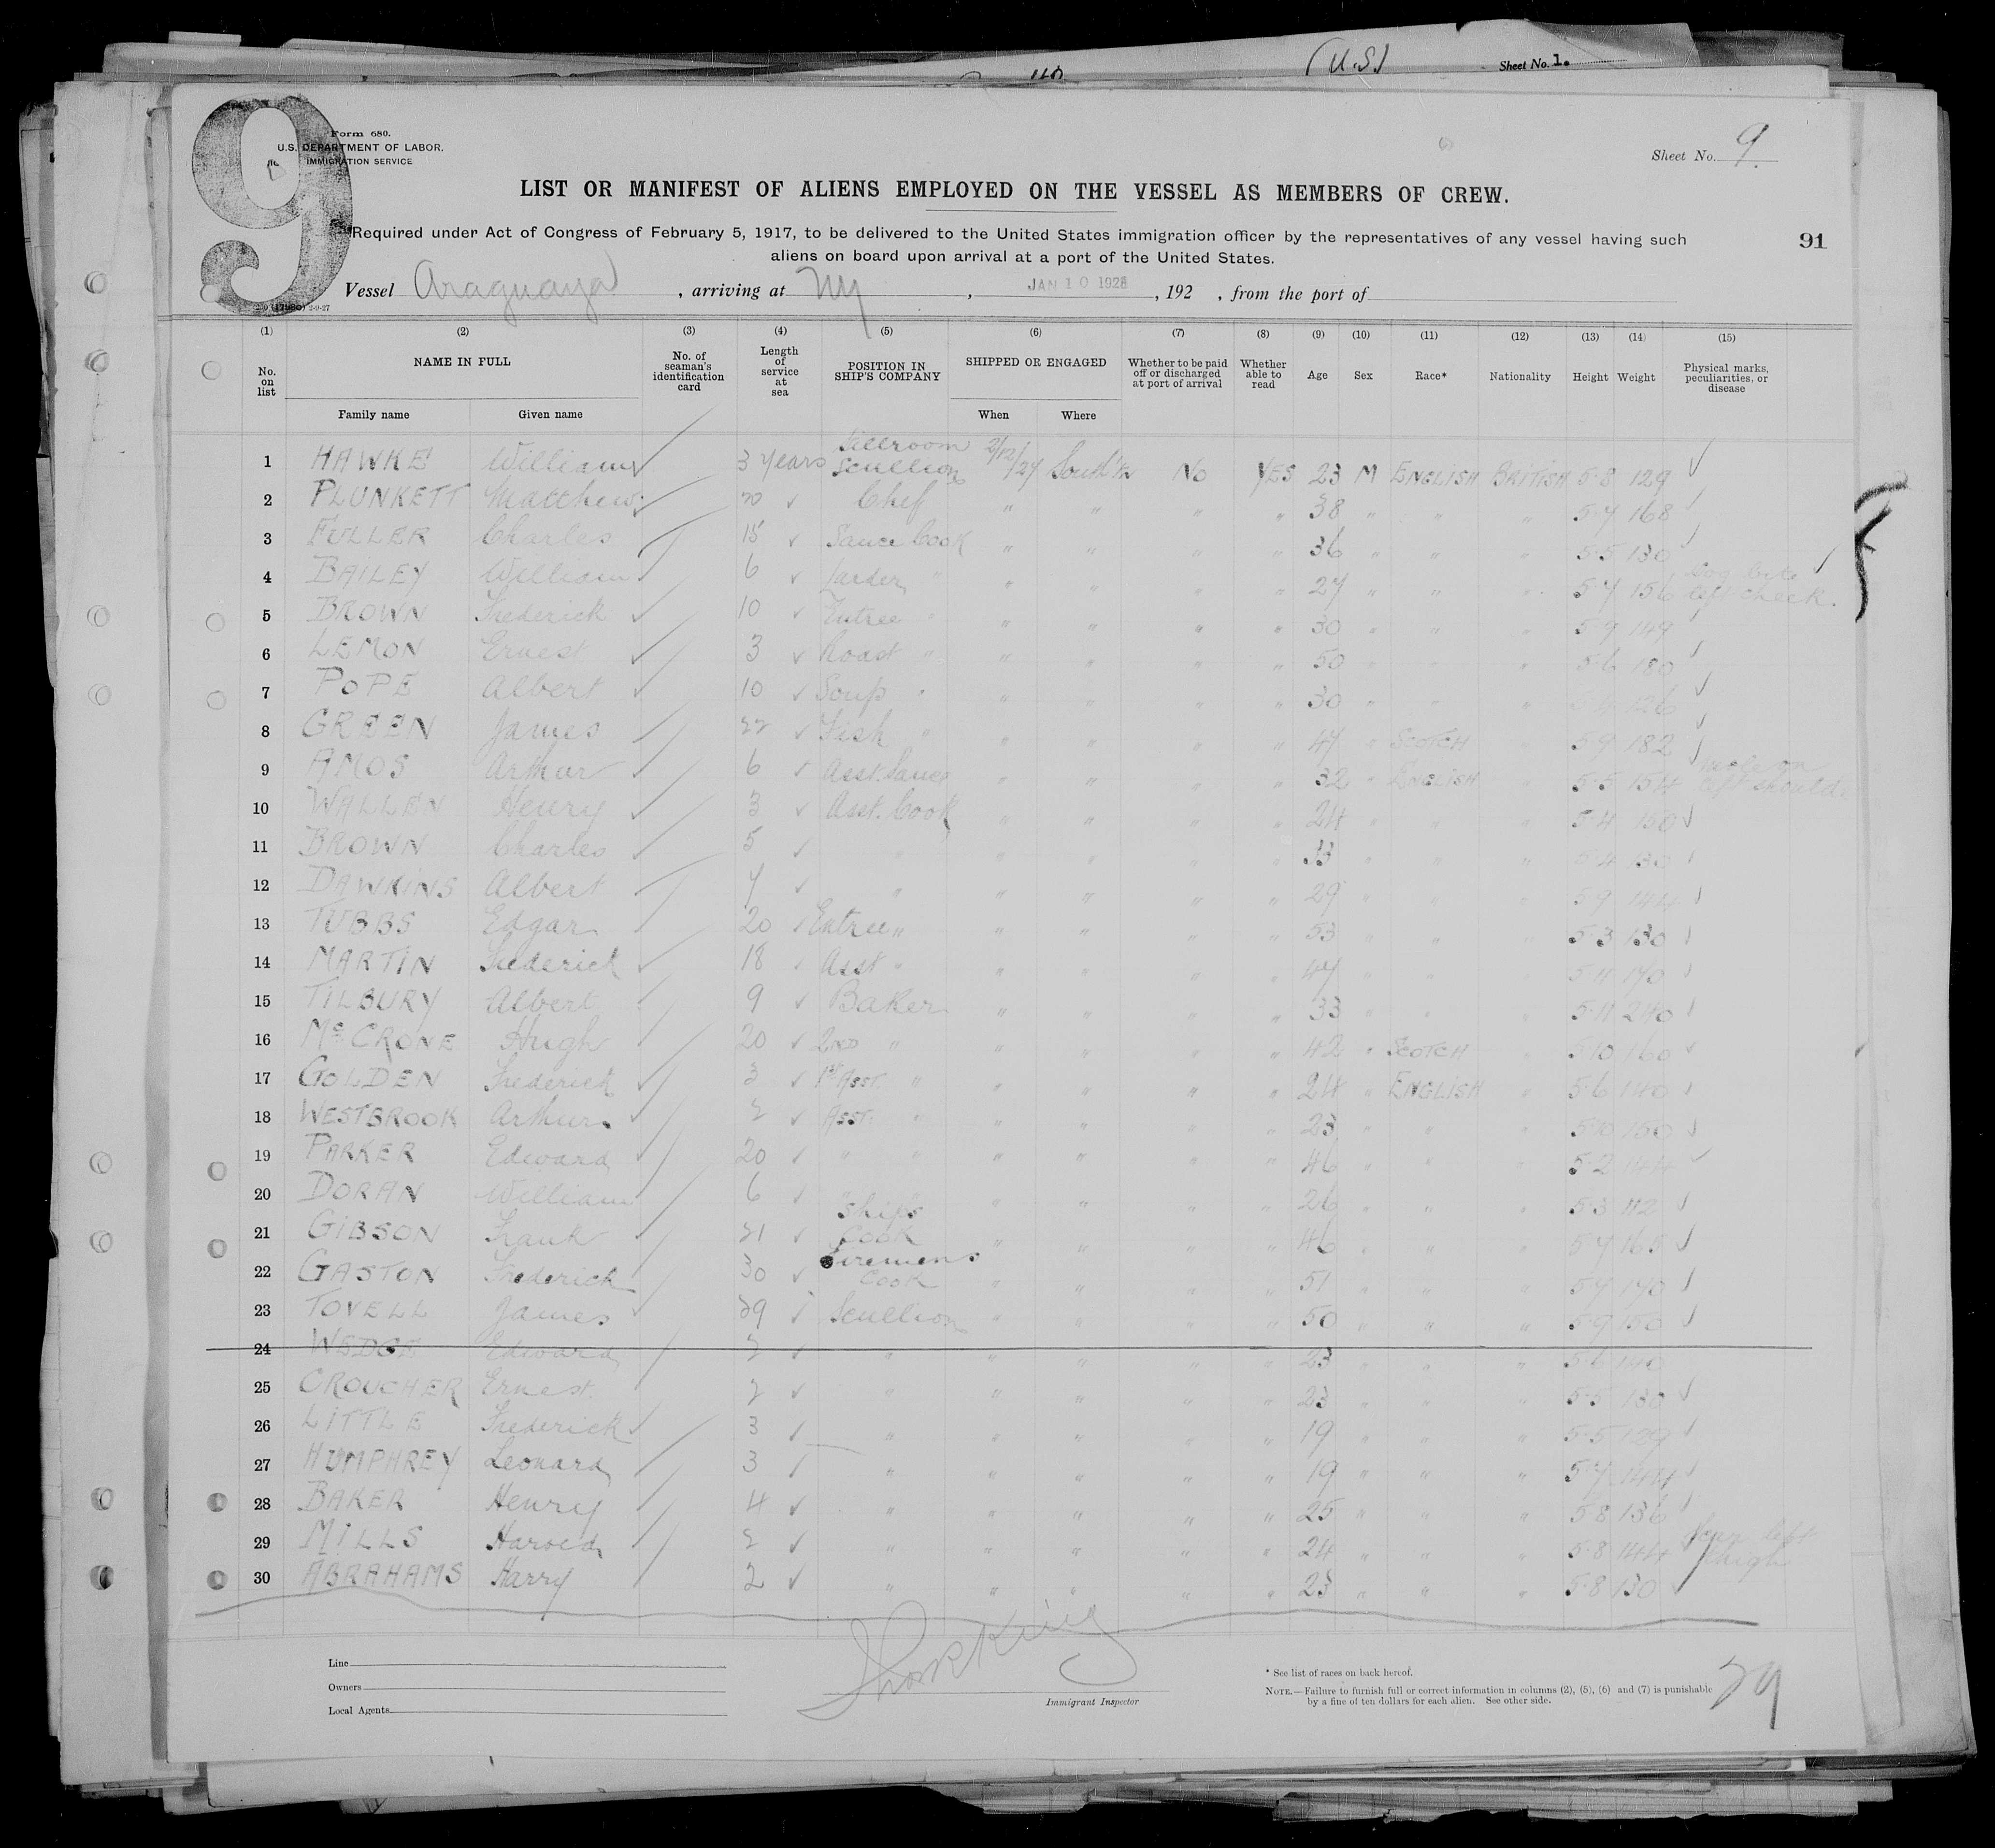 (U.S) Sheet No. 1.
9
Form 680.
U.S. DEPARTMENT OF LABOR.
IMMIGRATION SERVICE
Sheet No. 9.
LIST OR MANIFEST OF ALIENS EMPLOYED ON THE VESSEL AS MEMBERS OF CREW.
Required under Act of Congress of February 5, 1917, to be delivered to the United States immigration officer by the representatives of any vessel having such
aliens on board upon arrival at a port of the United States.
91
Vessel Araguaya, arriving at NY, JAN 10 1928, 192 , from the port of
(1) (2) (3) (4) (5) (6) (7) (8) (9) (10) (11) (12) (13) (14) (15)
No. on list NAME IN FULL No. of seaman's identification card Length of service at sea POSITION IN SHIP'S COMPANY SHIPPED OR ENGAGED Whether to be paid off or discharged at port of arrival Whether able to read Age Sex Race* Nationality Height Weight Physical marks, peculiarities, or disease
Family name Given name When Where
1 HAWKE William 3 years Scullion 2/12/27 South'tn No YES 23 M ENGLISH BRITISH 5-8 129
2 PLUNKETT Matthew 20 Chef " " " " 38 " " " 5-7 168
3 FULLER Charles 15 Sauce Cook " " " " 36 " " " 5-5 130
4 BAILEY William 6 Larder " " " " " 27 " " " 5-7 156 Dog bite left cheek.
5 BROWN Frederick 10 Entree " " " " " 30 " " " 5-9 149
6 LEMON Ernest 3 Roast " " " " " 50 " " " 5-6 180
7 POPE Albert 10 Soup " " " " " 30 " " " 126
8 GREEN James 22 Fish " " " " " 47 " SCOTCH " 5-9 182
9 AMOS Arthur 6 Asst. Sauce " " " " 32 " ENGLISH " 5-5 154 left shoulder
10 WALLEN Henry 3 Asst. Cook " " " " 24 " " " 5-4 150
11 BROWN Charles 5 " " " " " 33 " " " 5-4 130
12 DAWKINS Albert 7 " " " " " 29 " " " 5-9 144
13 TUBBS Edgar 20 Entree " " " " " 53 " " " 5-3 130
14 MARTIN Frederick 18 Asst " " " " " 47 " " " 5-11 170
15 TILBURY Albert 9 Baker " " " " 33 " " " 5-11 240
16 McCRONE Hugh 20 2ND " " " " " 42 " SCOTCH " 5-10 160
17 GOLDEN Frederick 3 1st Asst. " " " " " 24 " ENGLISH " 5-6 140
18 WESTBROOK Arthur 2 Asst. " " " " " 23 " " " 5-10 150
19 PARKER Edward 20 " " " " " " 46 " " " 5-2 144
20 DORAN William 6 " " " " " " 26 " " " 5-3 112
21 GIBSON Frank 21 Ships Cook " " " " 46 " " " 5-7 165
22 GASTON Frederick 30 Firemens Cook " " " " 51 " " " 5-7 170
23 TOVELL James 29 Scullion " " " " 50 " " " 5-9 150
24 WEDGE Edward 2 " " " " " 23 " " " 5-6 140
25 CROUCHER Ernest. 2 " " " " " 23 " " " 5-5 130
26 LITTLE Frederick 3 " " " " " 19 " " " 5-5 129
27 HUMPHREY Leonard 3 " " " " " 19 " " " 5-7 144
28 BAKER Henry 4 " " " " " 25 " " " 5-8 136
29 MILLS Harold 2 " " " " " 24 " " " 5-8 144 Scar left thigh
30 ABRAHAMS Harry 2 " " " " " 23 " " " 5-8 130
Line
Owners
Local Agents
Immigrant Inspector
* See list of races on back hereof.
NOTE.—Failure to furnish full or correct information in columns (2), (5), (6) and (7) is punishable
by a fine of ten dollars for each alien. See other side.
29